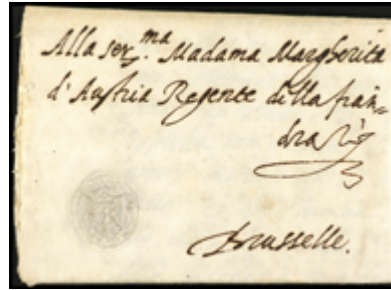 Alla ser.ma Madama Margherita
d'Austria Regente della fran=
dra
Brusselle.